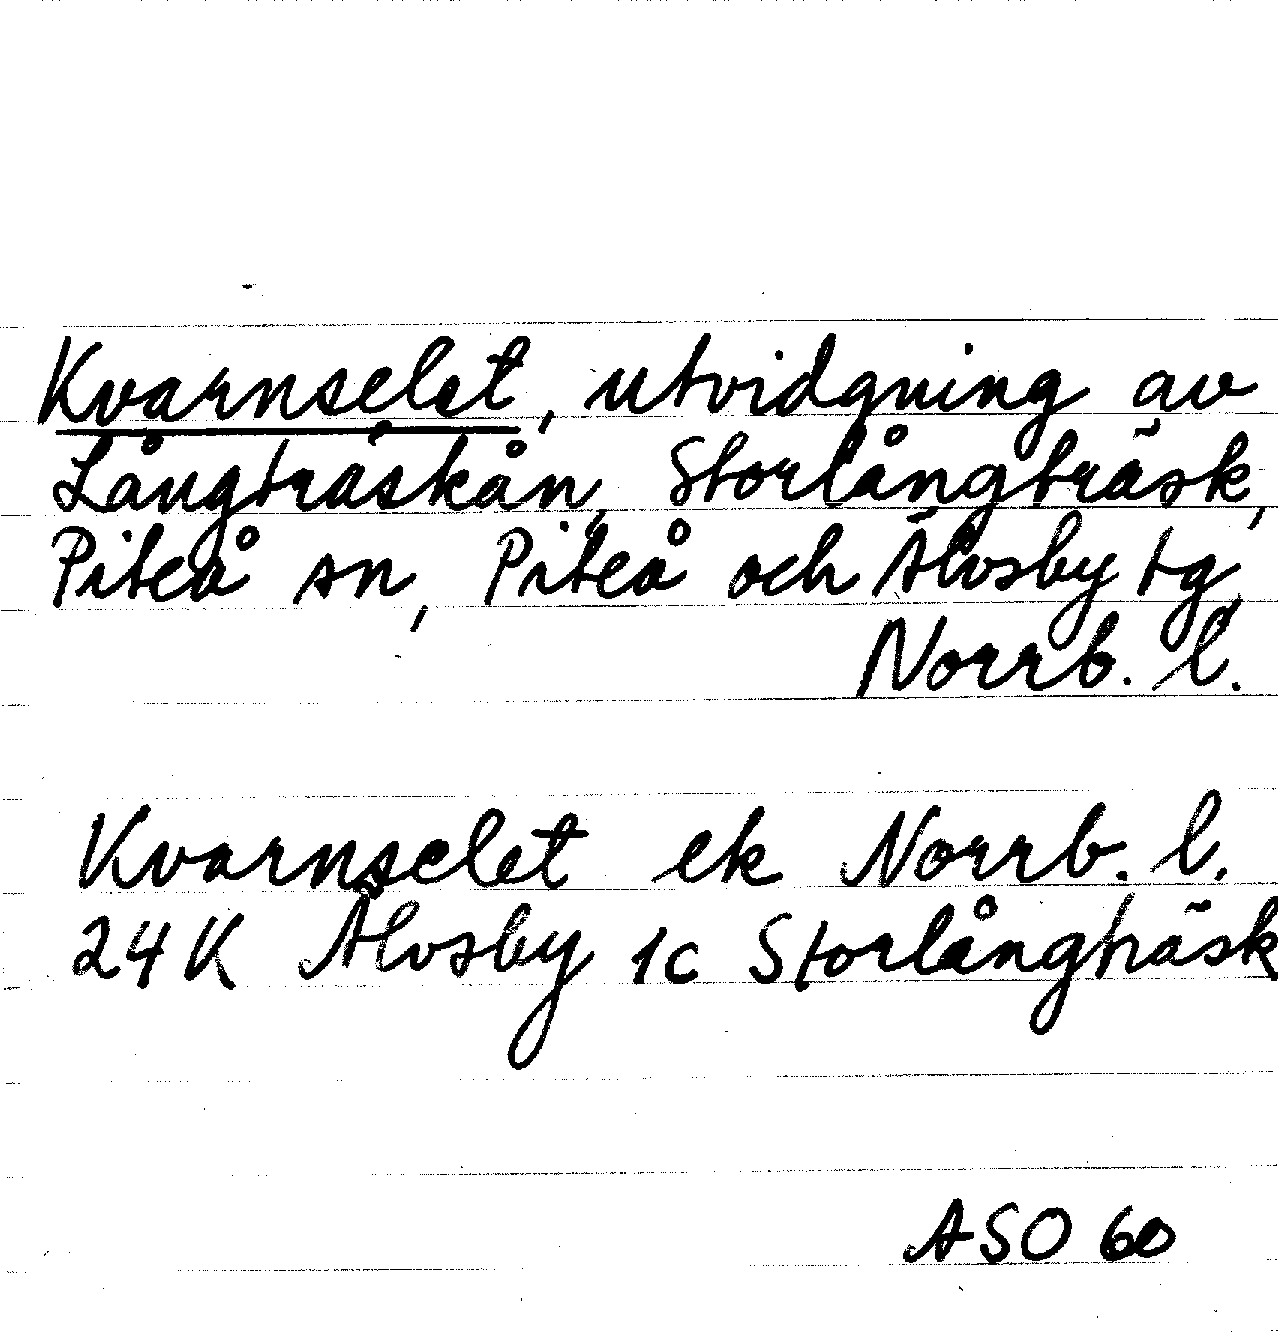 Kvarnselet, utvidgning av
Långträskån, Storlångträsk,
Piteå sn, Piteå och Älvsby tg,
Norrb. l.
Kvarnselet ek Norrb. l.
24K Älvsby 1c Storlångträsk
ASO 60